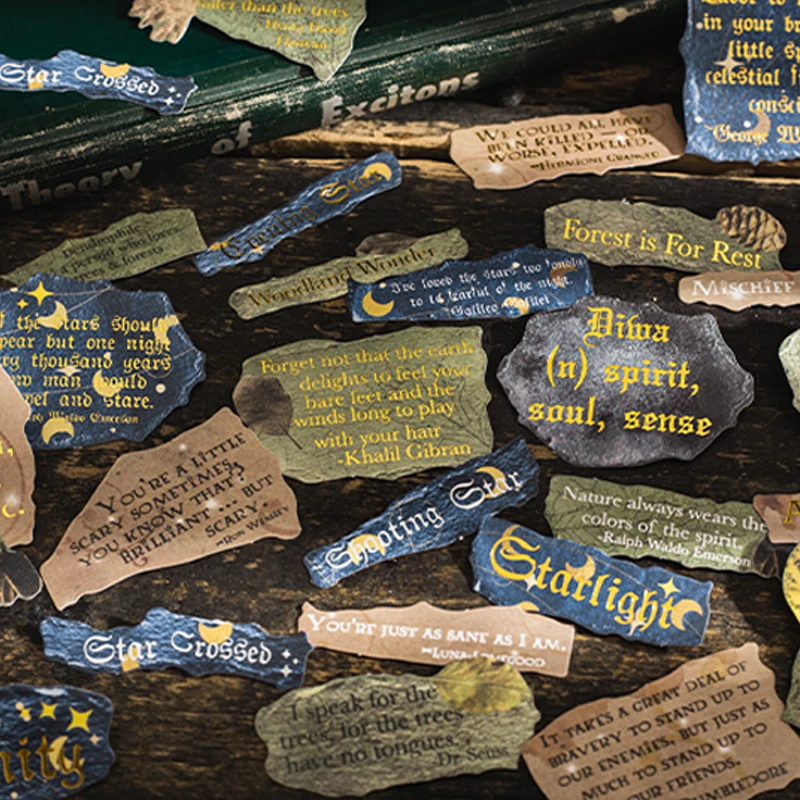 taller than the trees
Star Crossed
Theory of Excitons
in your
little
celestial
George
WE COULD ALL HAVE
BEEN KILLED — OR
WORSE, EXPELLED.
~HERMIONE GRANGER
Dendrophile
person who loves
trees & forests
Evening Star
Woodland Wonder
I've loved the stars too fondly
to be fearful of the night.
~Galileo Galilei
Forest is For Rest
MISCHIEF
the stars should
but one night
thousand years
man would
and stare.
Emerson
Forget not that the earth
delights to feel your
bare feet and the
winds long to play
with your hair
-Khalil Gibran
Diwa
(n) spirit,
soul, sense
YOU'RE A LITTLE
SCARY SOMETIMES,
YOU KNOW THAT?
BRILLIANT ... BUT
SCARY.
~RON WEASLEY
Shooting Star
Nature always wears the
colors of the spirit.
-Ralph Waldo Emerson
Starlight
Star Crossed
YOU'RE JUST AS SANE AS I AM.
~LUNA LOVEGOOD
I speak for the
trees, for the trees
have no tongues.
-Dr. Seuss
IT TAKES A GREAT DEAL OF
BRAVERY TO STAND UP TO
OUR ENEMIES, BUT JUST AS
MUCH TO STAND UP TO
OUR FRIENDS.